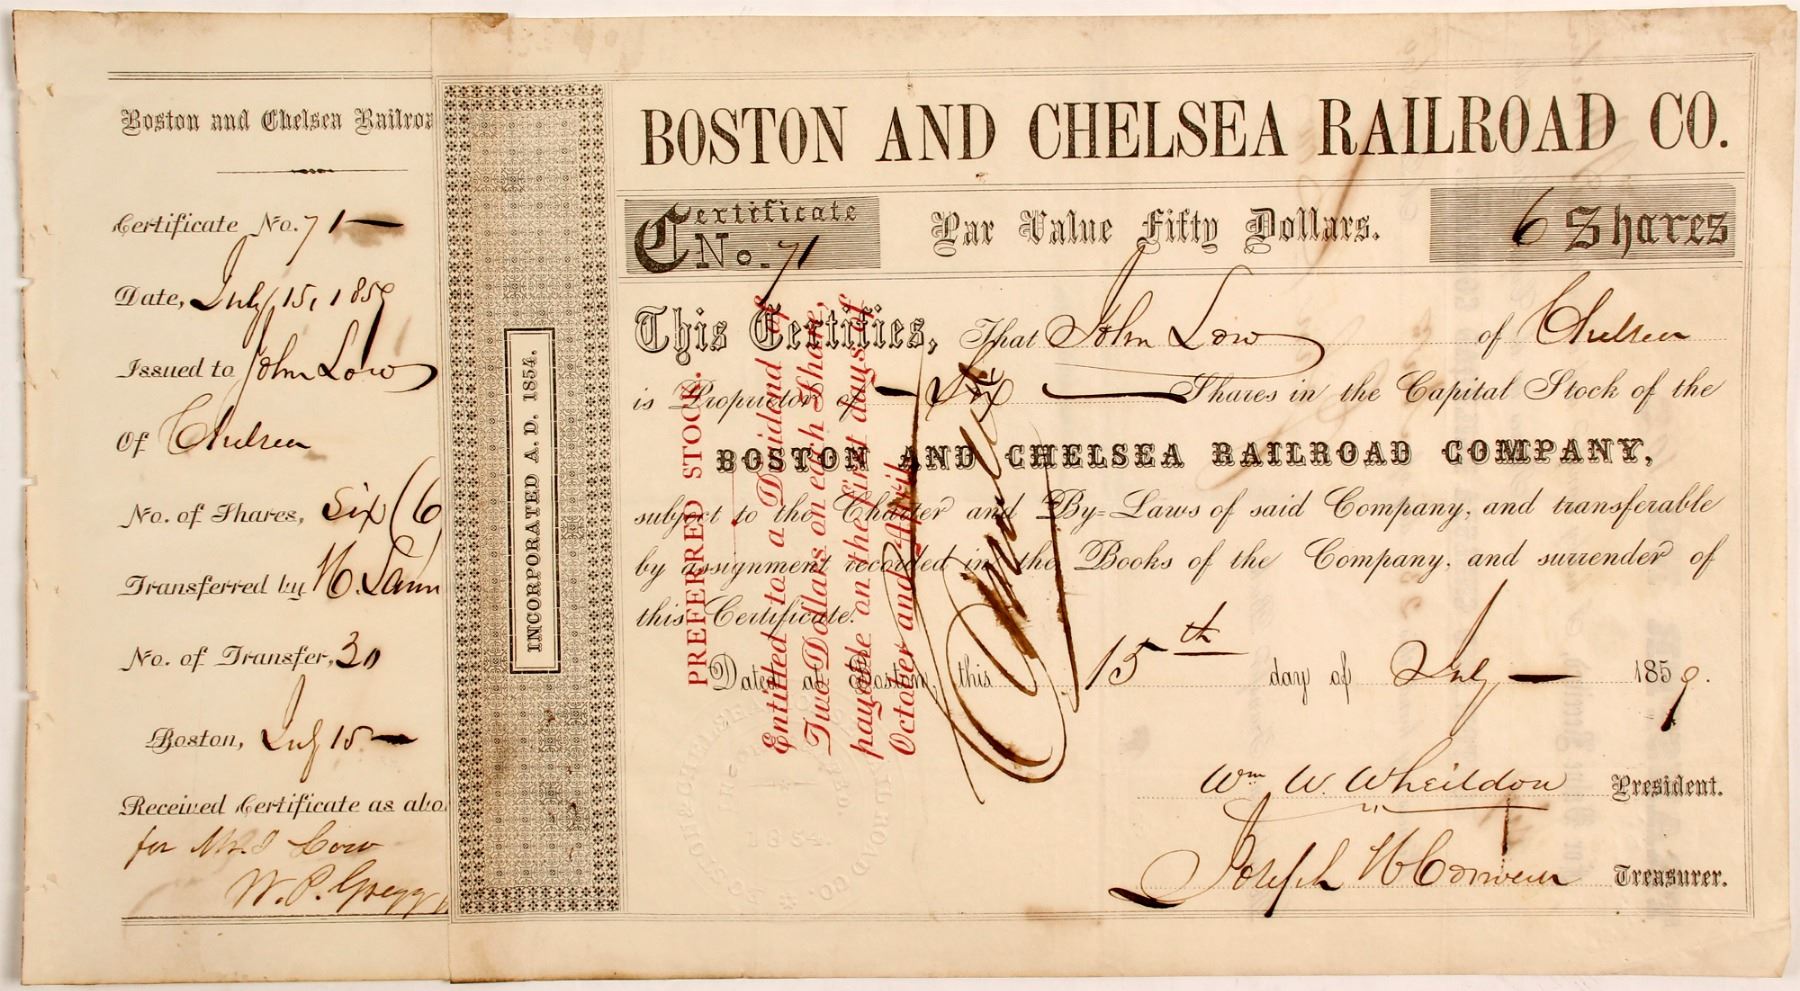 Boston and Chelsea Railroa
Certificate No. 71
Date, July 15, 1859
Issued to John Low
Of Chelsea
No. of Shares, Six (6
Transferred by
No. of Transfer, 30
Boston, July 15
Received Certificate as abo
for Low
W. P. Gregg
INCORPORATED A. D. 1854.
BOSTON AND CHELSEA RAILROAD CO.
Certificate No. 71
Par Value Fifty Dollars.
6 Shares
This Certifies, That John Low of Chelsea
is Proprietor of Six Shares in the Capital Stock of the
BOSTON AND CHELSEA RAILROAD COMPANY,
subject to the Charter and By-Laws of said Company, and transferable
by assignment recorded in the Books of the Company, and surrender of
this Certificate.
Dated at Boston, this 15th day of July 1859.
Wm W. Wheildon President.
Joseph H Treasurer.
PREFERRED STOCK.
Entitled to a Dividend of
Two Dollars on each Share,
payable on the first days of
October and April
Cancelled
BOSTON & CHELSEA RAILROAD CO.
1854.